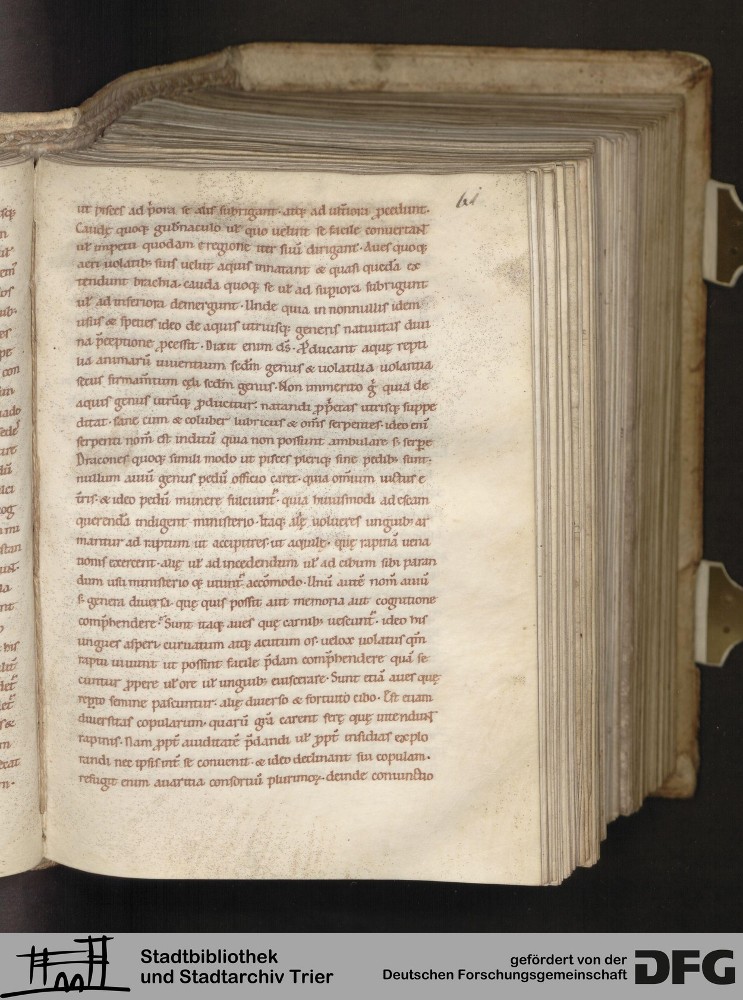 61
ut pisces ad p̄ora se aliis subrigant. atq; ad ulteriora ꝓcedunt.
Caudę quoq; gub̄naculo ul̄ quo velint se facile convertant
ul̄ impetu quodam e regione iter suū dirigant. Aves quoq;
aeri volatib; suis velut aquis innatant & quasi quedā ex
tendunt brachia. cauda quoq; se ul̄ ad supiora subrigunt
ul̄ ad inferiora demergunt. Unde quia in nonnullis idem
usus & species ideo de aquis utriusq; generis nativitas divi
na p̄ceptione ꝓcessit. Dixit enim d̄s. Ꝓducant aquę repti
lia animarū viventium scdm̄ genus & volatilia volantia
secus firmam̄tum cęli scdm̄ genus. Non immerito ḡ quia de
aquis genus utrūq; ꝓducitur. natandi ꝓp̄etas utrisq; suppe
ditat. sane cum & coluber lubricus & om̄s serpentes. ideo eni
serpenti nom̄ est inditū quia non possunt ambulare s; serpe
Dracones quoq; simili modo ut pisces pleriq; sine pedib; sunt.
nullum aviū genus pedū officio caret. quia omnium victus e
tr̄is. & ideo pedū munere fulciunt̄. quia huiusmodi ad escam
querendā indigent ministerio. Itaq; alię volucres unguib; ar
mantur ad raptum ut accipitres ut aquilę. quę rapinā vena
tionis exercent. alię ul̄ ad incedendum ul̄ ad cibum sibi paran
dum usu ministerio utunt̄ accōmodo. Unū autē nom̄ aviū
s; genera diversa. quę quis possit aut memoria aut cognitione
comp̄hendere. Sunt itaq; aves quę carnib; vescunt̄. ideo his
ungues asperi. curvatum atq; acutum os. velox volatus qm̄
raptu vivunt ut possint facile p̄dam comp̄hendere quā se
cuntur ꝓpere ul̄ ore ul̄ unguib; eviscerare. Sunt etiā aves quę
repto semine pascuntur. alię diverso & fortuito cibo. Est etiam
diversitas copularum. quarū gr̄a carent ferę quę intendunt
rapinis. Nam ꝓpt̄ aviditatē p̄dandi ul̄ ꝓpt̄ insidias explo
randi nec ipsis int̄ se convenit. & ideo declinant sui copulam.
refugit enim avaritia consortiū plurimoꝝ. deinde coniunctio
Stadtbibliothek
und Stadtarchiv Trier
gefördert von der
Deutschen Forschungsgemeinschaft
DFG